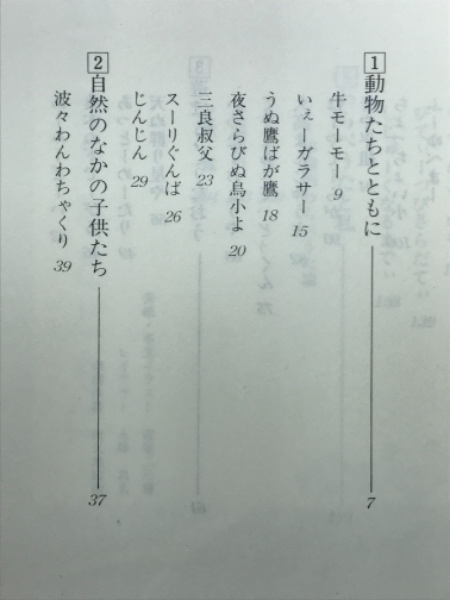 1 動物たちとともに 7
牛モーモー 9
いぇーガラサー 15
うぬ鷹ばが鷹 18
夜さらびぬ鳥小よ 20
三良叔父 23
スーリぐんば 26
じんじん 29
2 自然のなかの子供たち 37
波々わんわちゃくり 39